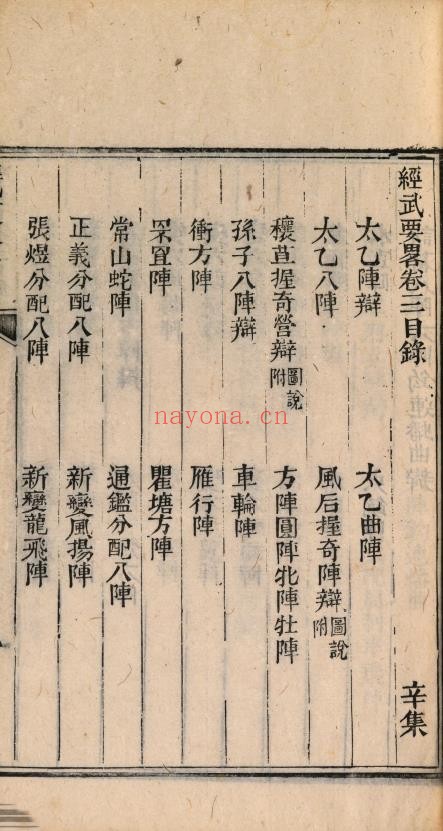 經武要畧卷三目錄 辛集
太乙陣辯 太乙曲陣
太乙八陣 風后握奇陣辯圖說附
穰苴握奇營辯圖說附 方陣圓陣牝陣牡陣
孫子八陣辯 車輪陣
衝方陣 雁行陣
罘罝陣 瞿塘方陣
常山蛇陣 通鑑分配八陣
正義分配八陣 新變風揚陣
張燧分配八陣 新變龍飛陣
nayona.cn